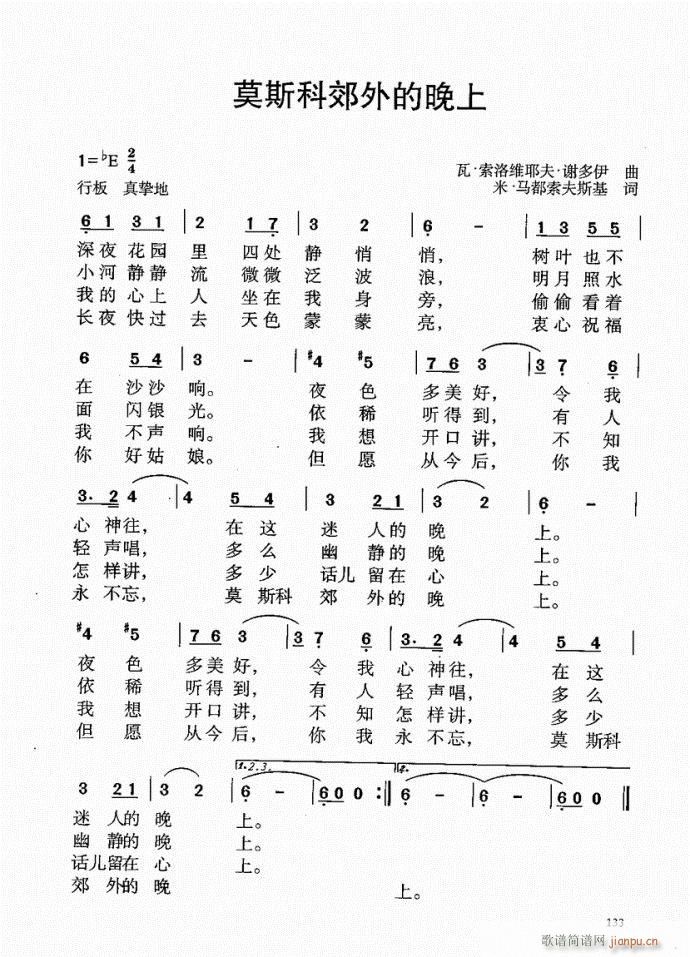 莫斯科郊外的晚上
1=♭E 2/4
瓦·索洛维耶夫·谢多伊 曲
行板 真挚地
米·马都索夫斯基 词
6 1 3 1 | 2 1 7 | 3 2 | 6 - | 1 3 5 5 |
深夜花园里 四处静悄悄, 树叶也不
小河静静流 微微泛波浪, 明月照水
我的心上人 坐在我身旁, 偷偷看着
长夜快过去 天色蒙蒙亮, 衷心祝福
6 5 4 | 3 - | #4 #5 | 7 6 3 | 3 7 6 |
在沙沙响。 夜色多美好, 令我
面闪银光。 依稀听得到, 有人
我不声响。 我想开口讲, 不知
你好姑娘。 但愿从今后, 你我
3· 2 4 | 4 5 4 | 3 2 1 | 3 2 | 6 - |
心神往, 在这迷人的晚上。
轻声唱, 多么幽静的晚上。
怎样讲, 多少话儿留在心上。
永不忘, 莫斯科郊外的晚上。
#4 #5 | 7 6 3 | 3 7 6 | 3· 2 4 | 4 5 4 |
夜色多美好, 令我心神往, 在这
依稀听得到, 有人轻声唱, 多么
我想开口讲, 不知怎样讲, 多少
但愿从今后, 你我永不忘, 莫斯科
1.2.3. 4.
3 2 1 | 3 2 | 6 - | 6 0 0 0 :‖ 6 - | 6 - | 6 0 0 0 ‖
迷人的晚上。
幽静的晚上。
话儿留在心上。
郊外的晚 上。
133
歌谱简谱网 jianpu.cn